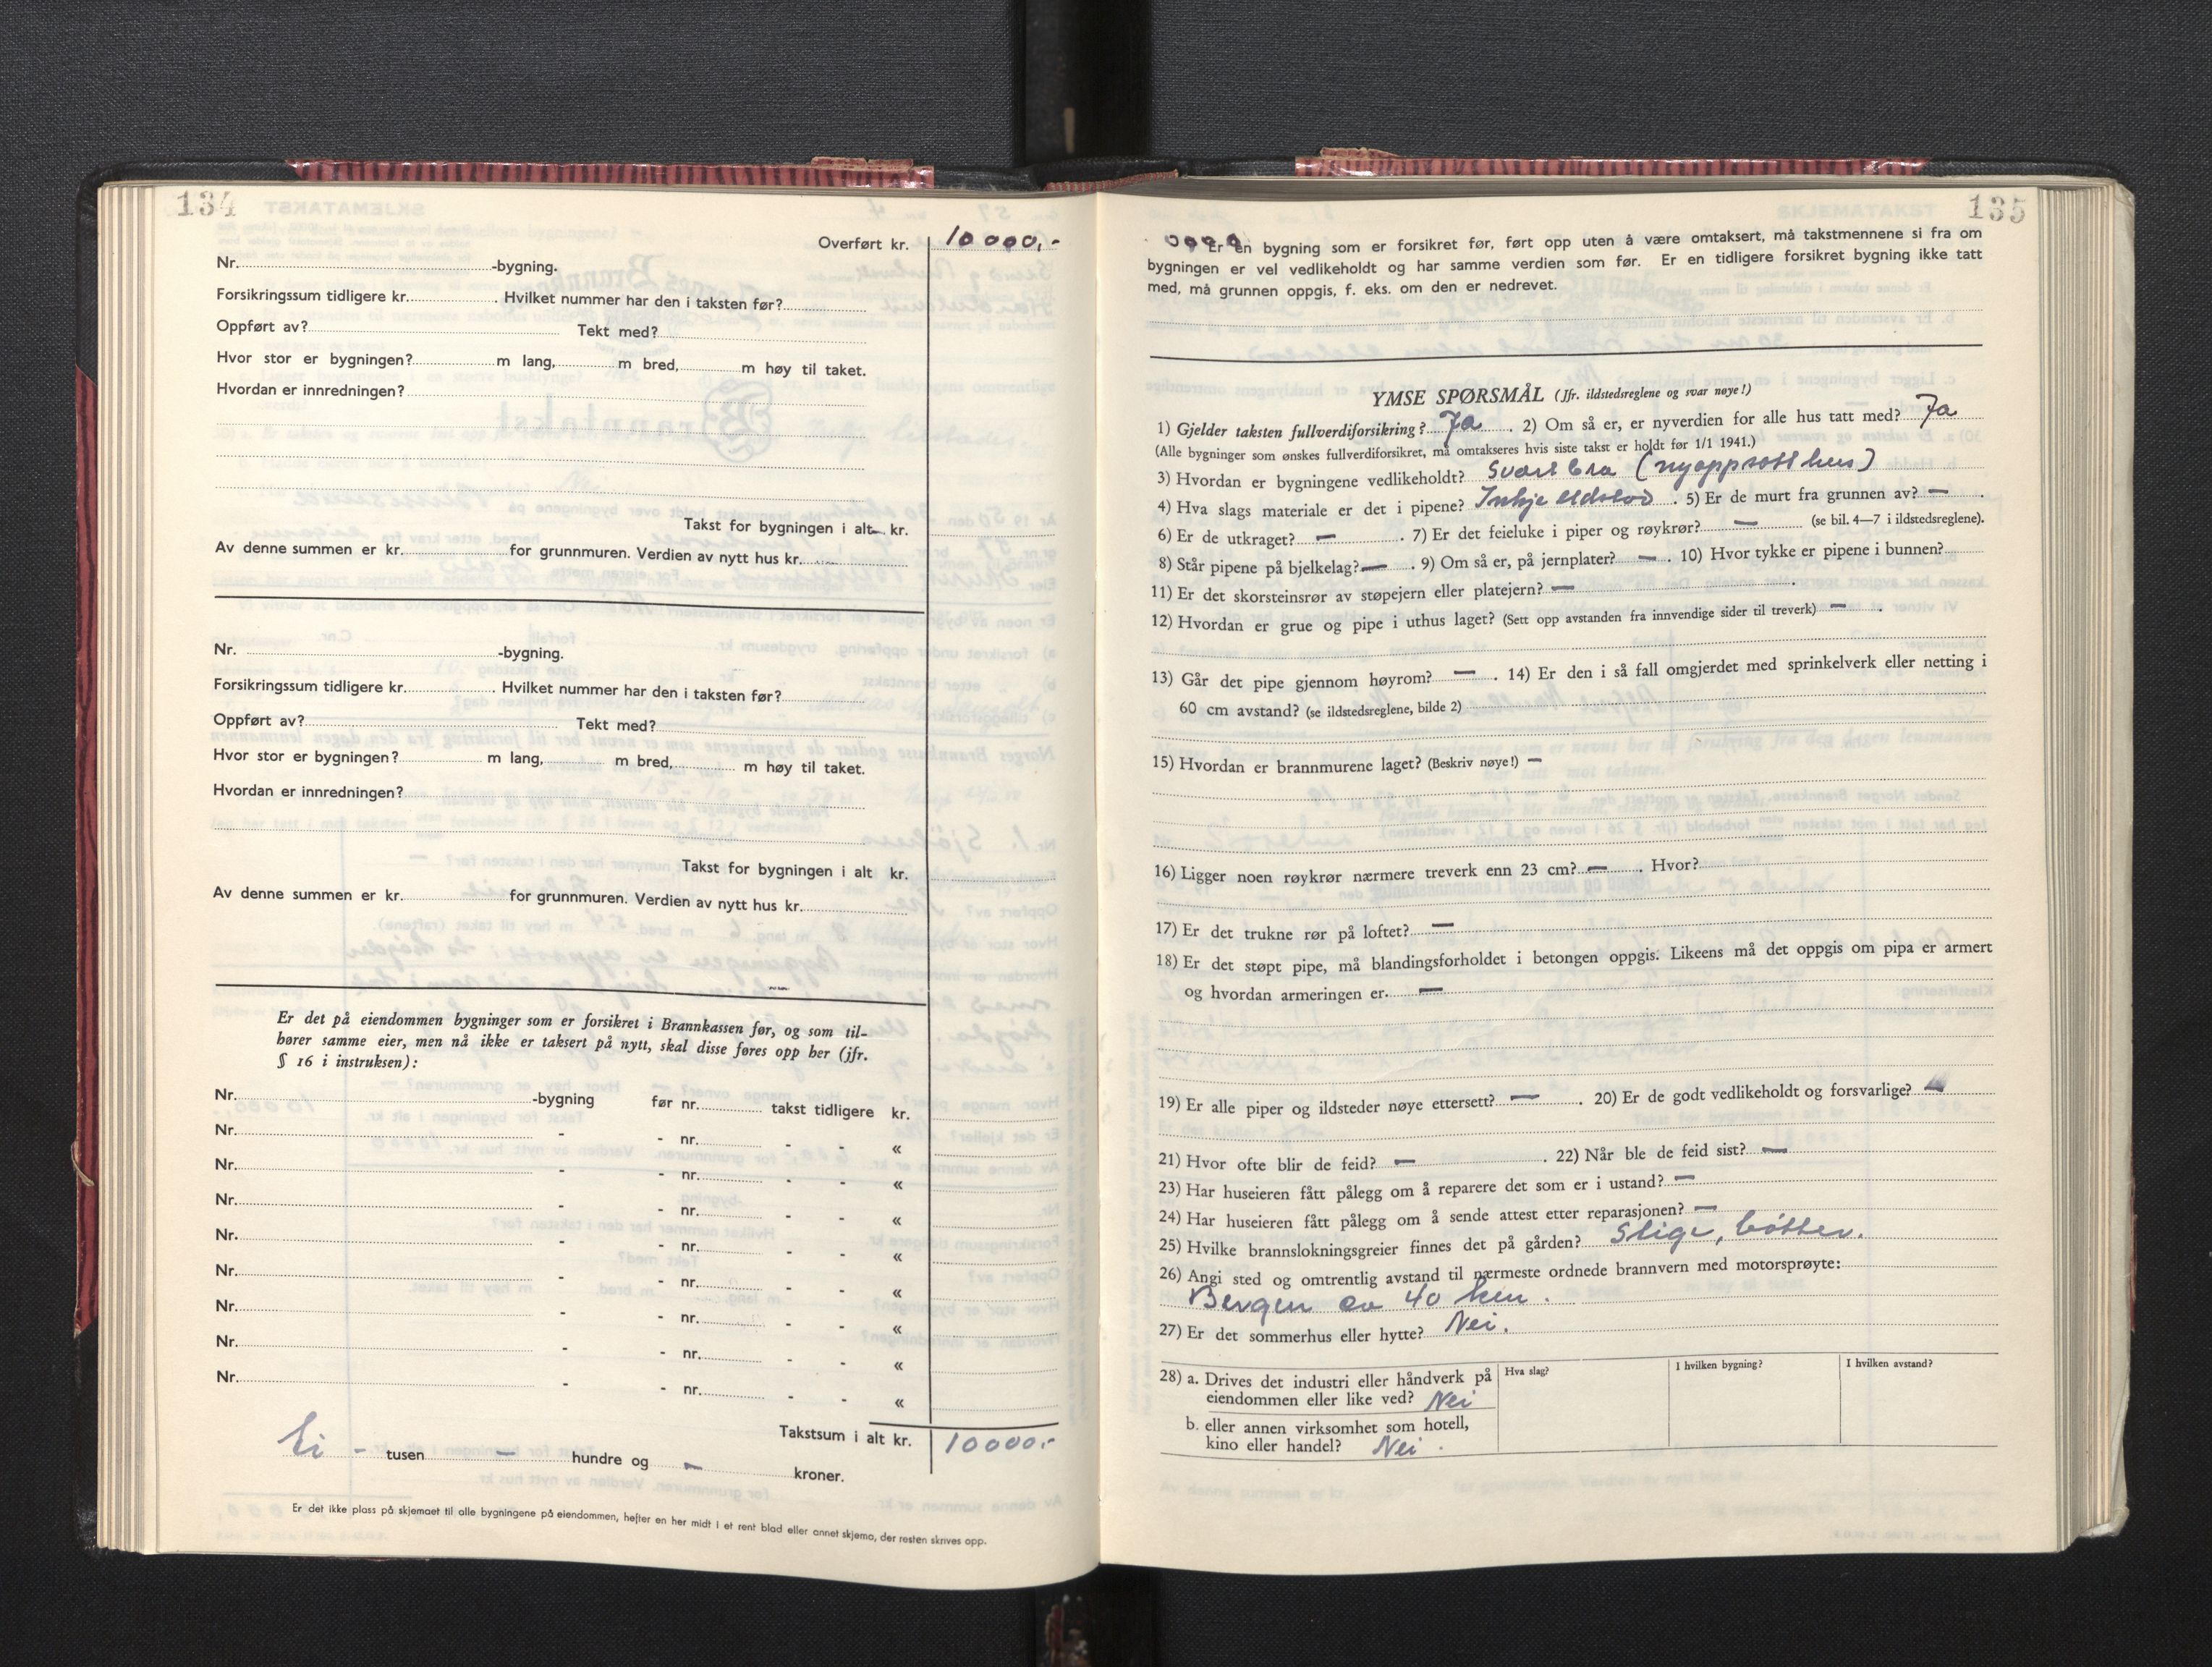 134
Overført kr. 10000,-
Nr. -bygning.
Forsikringssum tidligere kr. . Hvilket nummer har den i taksten før?
Oppført av? Tekt med?
Hvor stor er bygningen? m lang, m bred, m høy til taket.
Hvordan er innredningen?
Takst for bygningen i alt kr.
Av denne summen er kr. for grunnmuren. Verdien av nytt hus kr.
Nr. -bygning.
Forsikringssum tidligere kr. . Hvilket nummer har den i taksten før?
Oppført av? Tekt med?
Hvor stor er bygningen? m lang, m bred, m høy til taket.
Hvordan er innredningen?
Takst for bygningen i alt kr.
Av denne summen er kr. for grunnmuren. Verdien av nytt hus kr.
Er det på eiendommen bygninger som er forsikret i Brannkassen før, og som til-
hører samme eier, men nå ikke er taksert på nytt, skal disse føres opp her (jfr.
§ 16 i instruksen):
Nr. -bygning før nr. takst tidligere kr.
Nr. - - nr. - - «
Nr. - - nr. - - «
Nr. - - nr. - - «
Nr. - - nr. - - «
Nr. - - nr. - - «
Nr. - - nr. - - «
Nr. - - nr. - - «
Nr. - - nr. - - «
Takstsum i alt kr. 10000,-
Ti - tusen - hundre og - kroner.
Er det ikke plass på skjemaet til alle bygningene på eiendommen, hefter en her midt i et rent blad eller annet skjema, der resten skrives opp.
135
Er en bygning som er forsikret før, ført opp uten å være omtaksert, må takstmennene si fra om
bygningen er vel vedlikeholdt og har samme verdien som før. Er en tidligere forsikret bygning ikke tatt
med, må grunnen oppgis, f. eks. om den er nedrevet.
YMSE SPØRSMÅL (Jfr. ildstedsreglene og svar nøye!)
1) Gjelder taksten fullverdiforsikring? Ja . 2) Om så er, er nyverdien for alle hus tatt med? Ja
(Alle bygninger som ønskes fullverdiforsikret, må omtakseres hvis siste takst er holdt før 1/1 1941.)
3) Hvordan er bygningene vedlikeholdt? Svært bra (nyoppsatt hus)
4) Hva slags materiale er det i pipene? Inkje eldsted . 5) Er de murt fra grunnen av? - .
6) Er de utkraget? - . 7) Er det feieluke i piper og røykrør? - (se bil. 4—7 i ildstedsreglene).
8) Står pipene på bjelkelag? - . 9) Om så er, på jernplater? - . 10) Hvor tykke er pipene i bunnen?
11) Er det skorsteinsrør av støpejern eller platejern? - .
12) Hvordan er grue og pipe i uthus laget? (Sett opp avstanden fra innvendige sider til treverk) - .
13) Går det pipe gjennom høyrom? - . 14) Er den i så fall omgjerdet med sprinkelverk eller netting i
60 cm avstand? (se ildstedsreglene, bilde 2)
15) Hvordan er brannmurene laget? (Beskriv nøye!) -
16) Ligger noen røykrør nærmere treverk enn 23 cm? - . Hvor?
17) Er det trukne rør på loftet? -
18) Er det støpt pipe, må blandingsforholdet i betongen oppgis. Likeens må det oppgis om pipa er armert
og hvordan armeringen er. -
19) Er alle piper og ildsteder nøye ettersett? - . 20) Er de godt vedlikeholdt og forsvarlige? -
21) Hvor ofte blir de feid? - . 22) Når ble de feid sist? -
23) Har huseieren fått pålegg om å reparere det som er i ustand? -
24) Har huseieren fått pålegg om å sende attest etter reparasjonen? -
25) Hvilke brannslokningsgreier finnes det på gården? Stige, bøtter.
26) Angi sted og omtrentlig avstand til nærmeste ordnede brannvern med motorsprøyte:
Bergen ca 40 km.
27) Er det sommerhus eller hytte? Nei.
28) a. Drives det industri eller håndverk på Hva slag? I hvilken bygning? I hvilken avstand?
eiendommen eller like ved? Nei
b. eller annen virksomhet som hotell,
kino eller handel? Nei.